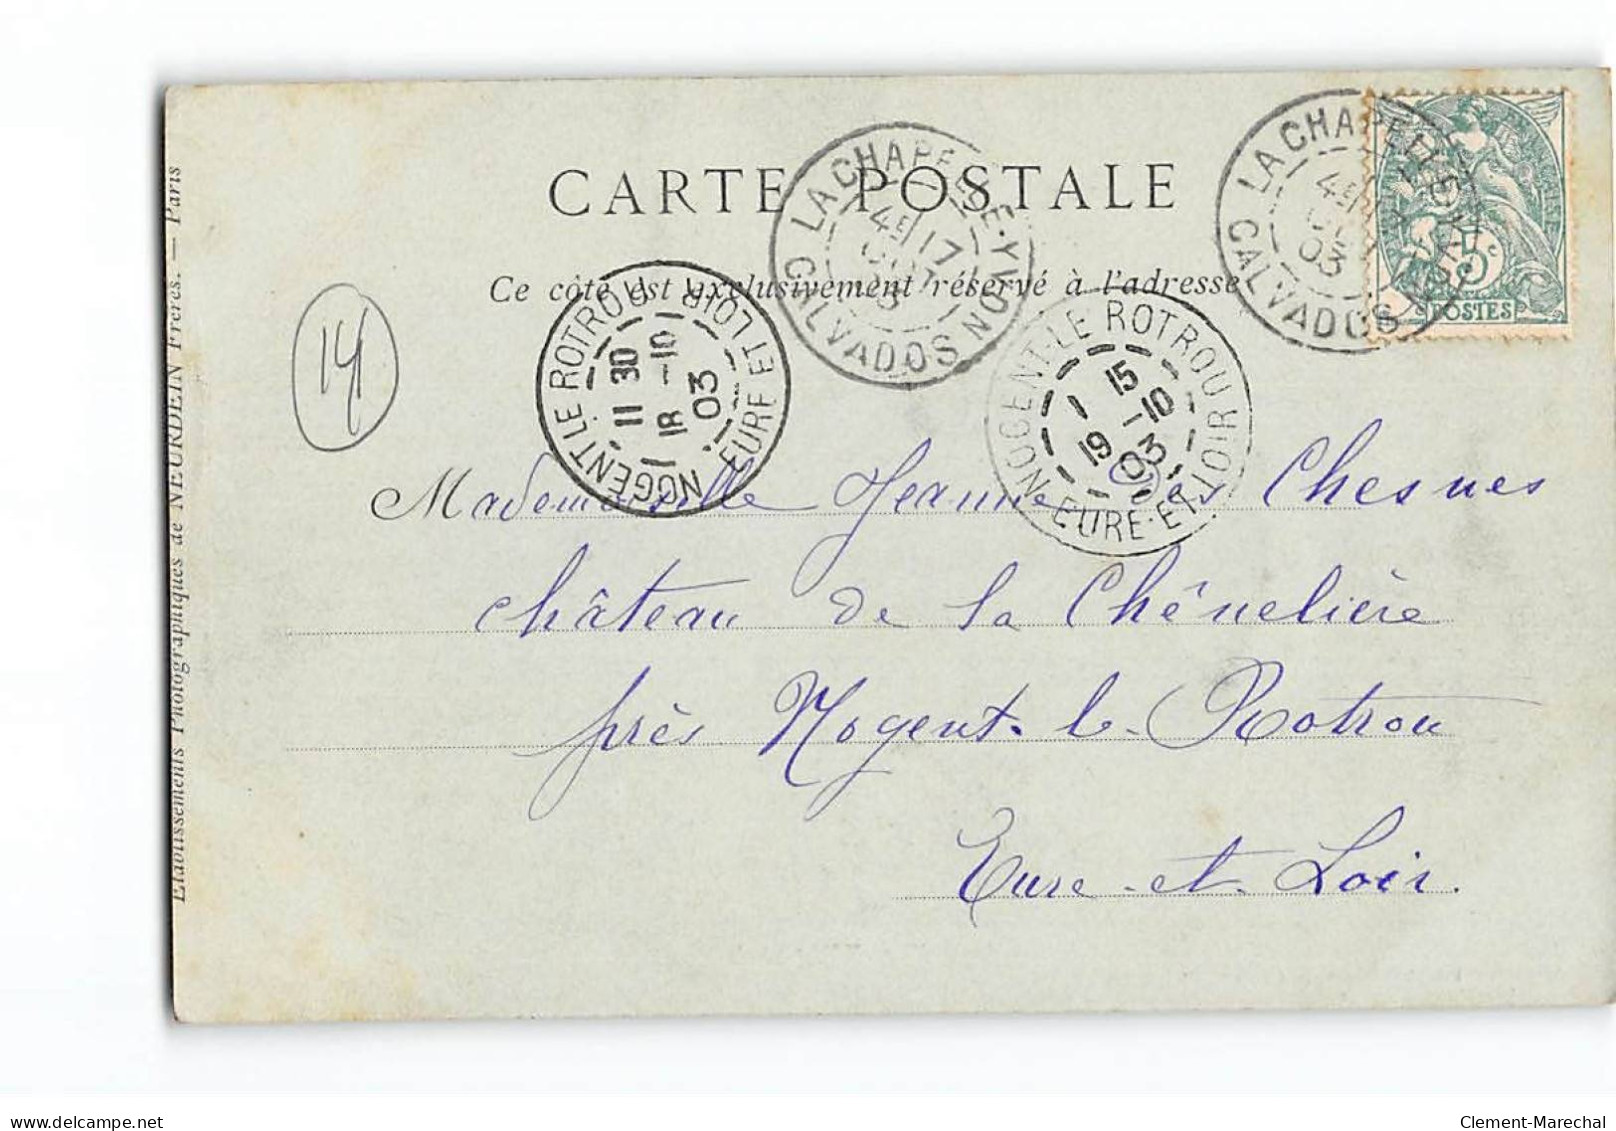 CARTE POSTALE
Ce côté est exclusivement réservé à l'adresse
LA CHAPELLE-YVON
CALVADOS
4E 17
OCT
03
LA CHAPELLE-YVON
CALVADOS
4E
03
5c
POSTES
NOGENT LE ROTROU
EURE ET LOIR
11 30
18 -10
03
NOGENT-LE ROTROU
EURE-ET-LOIR
1 15
19 -10
03
14
Mademoiselle Jeanne des Chesnes
château de la Chênelière
près Nogent-le-Rotrou
Eure-et-Loir.
Etablissements Photographiques de NEURDEIN Frères. — Paris
delcampe.net
Clement-Marechal